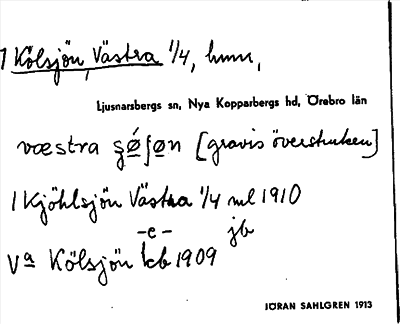 1 Kölsjön, Västra 1/4, hmn,
Ljusnarsbergs sn, Nya Kopparbergs hd, Örebro län
væstra ʂǿʃøn [gravis överstruken]
1 Kjöhlsjön Västra 1/4 ml 1910
-e- jb
Va Kölsjön kb 1909
JÖRAN SAHLGREN 1913